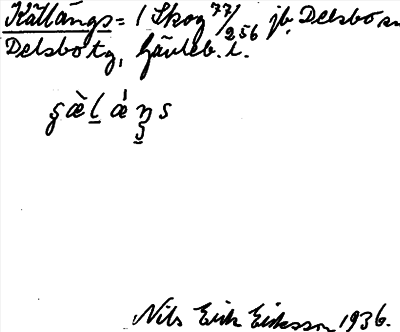 Källängs= (Skog 77/256 jb. Delsbo sn
Delsbo tg, Gävleb. l.
Nils Erik Eriksson 1936.